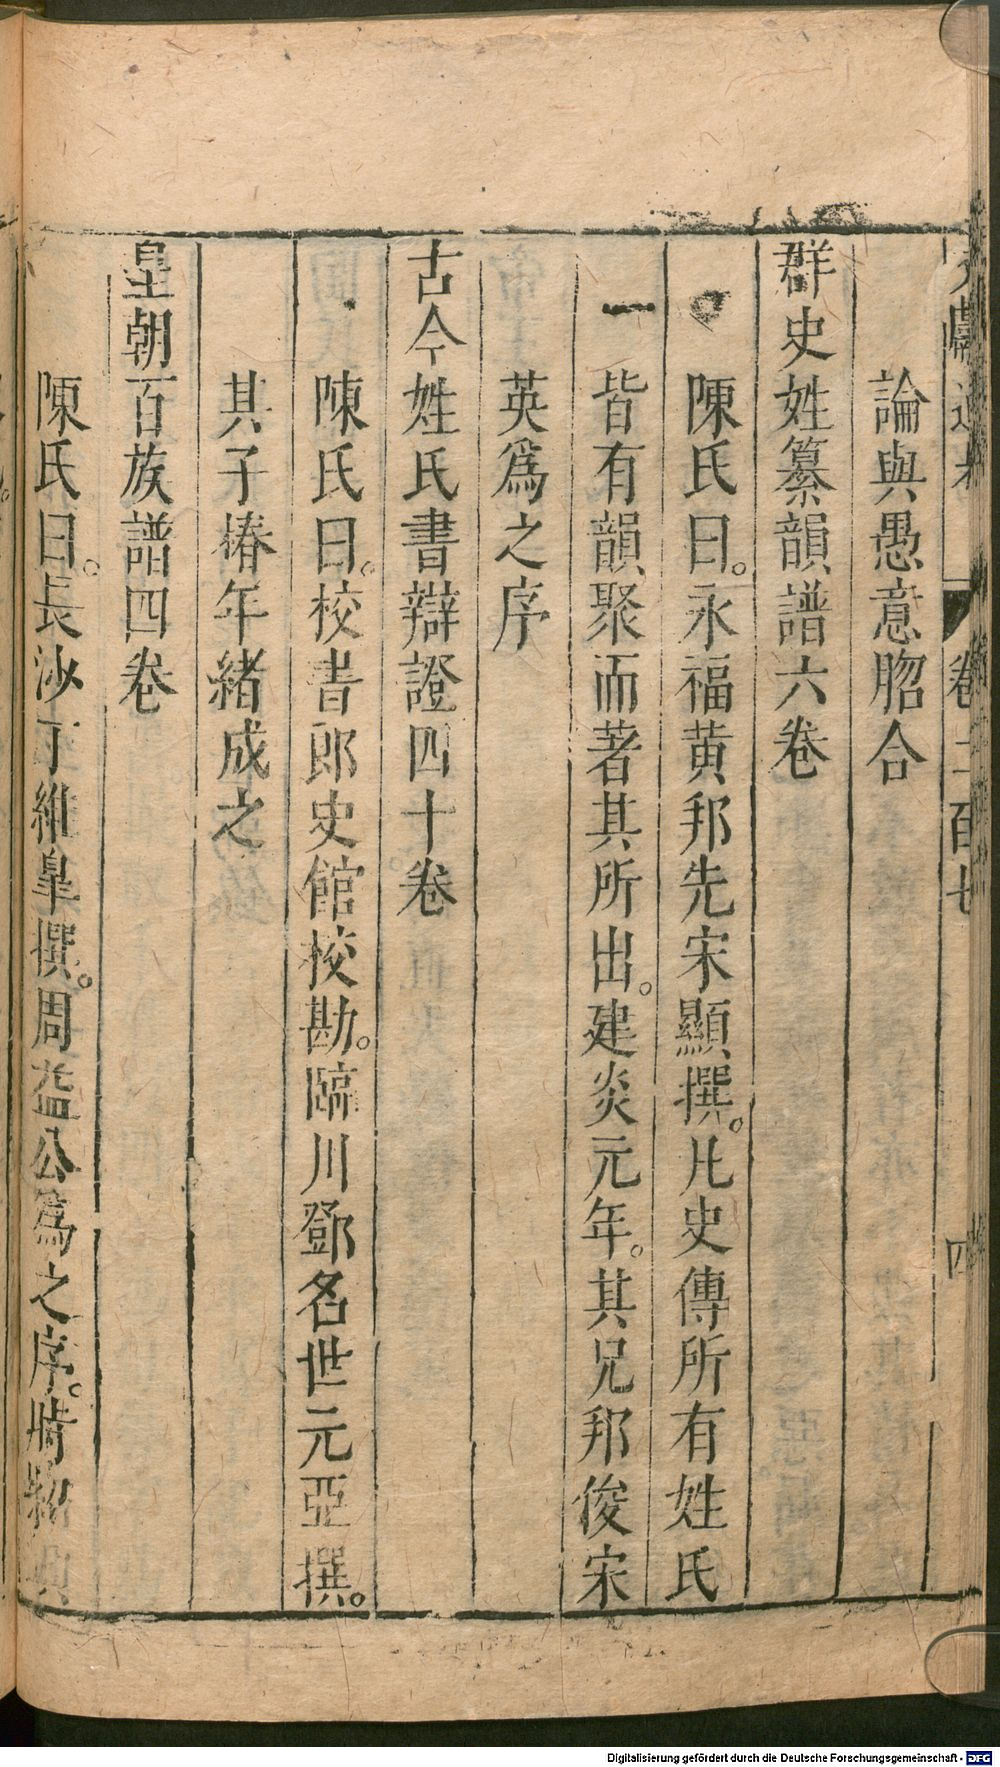 文獻通考 卷二百七 四
論與愚意脗合
群史姓纂韻譜六卷
陳氏曰永福黃邦先宋顯撰凡史傳所有姓氏
一皆有韻聚而著其所出建炎元年其兄邦俊宋
英爲之序
古今姓氏書辯證四十卷
陳氏曰校書郎史館校勘臨川鄧名世元亞撰
其子椿年緒成之
皇朝百族譜四卷
陳氏曰長沙丁維皐撰周益公爲之序時紹興
Digitalisierung gefördert durch die Deutsche Forschungsgemeinschaft - DFG